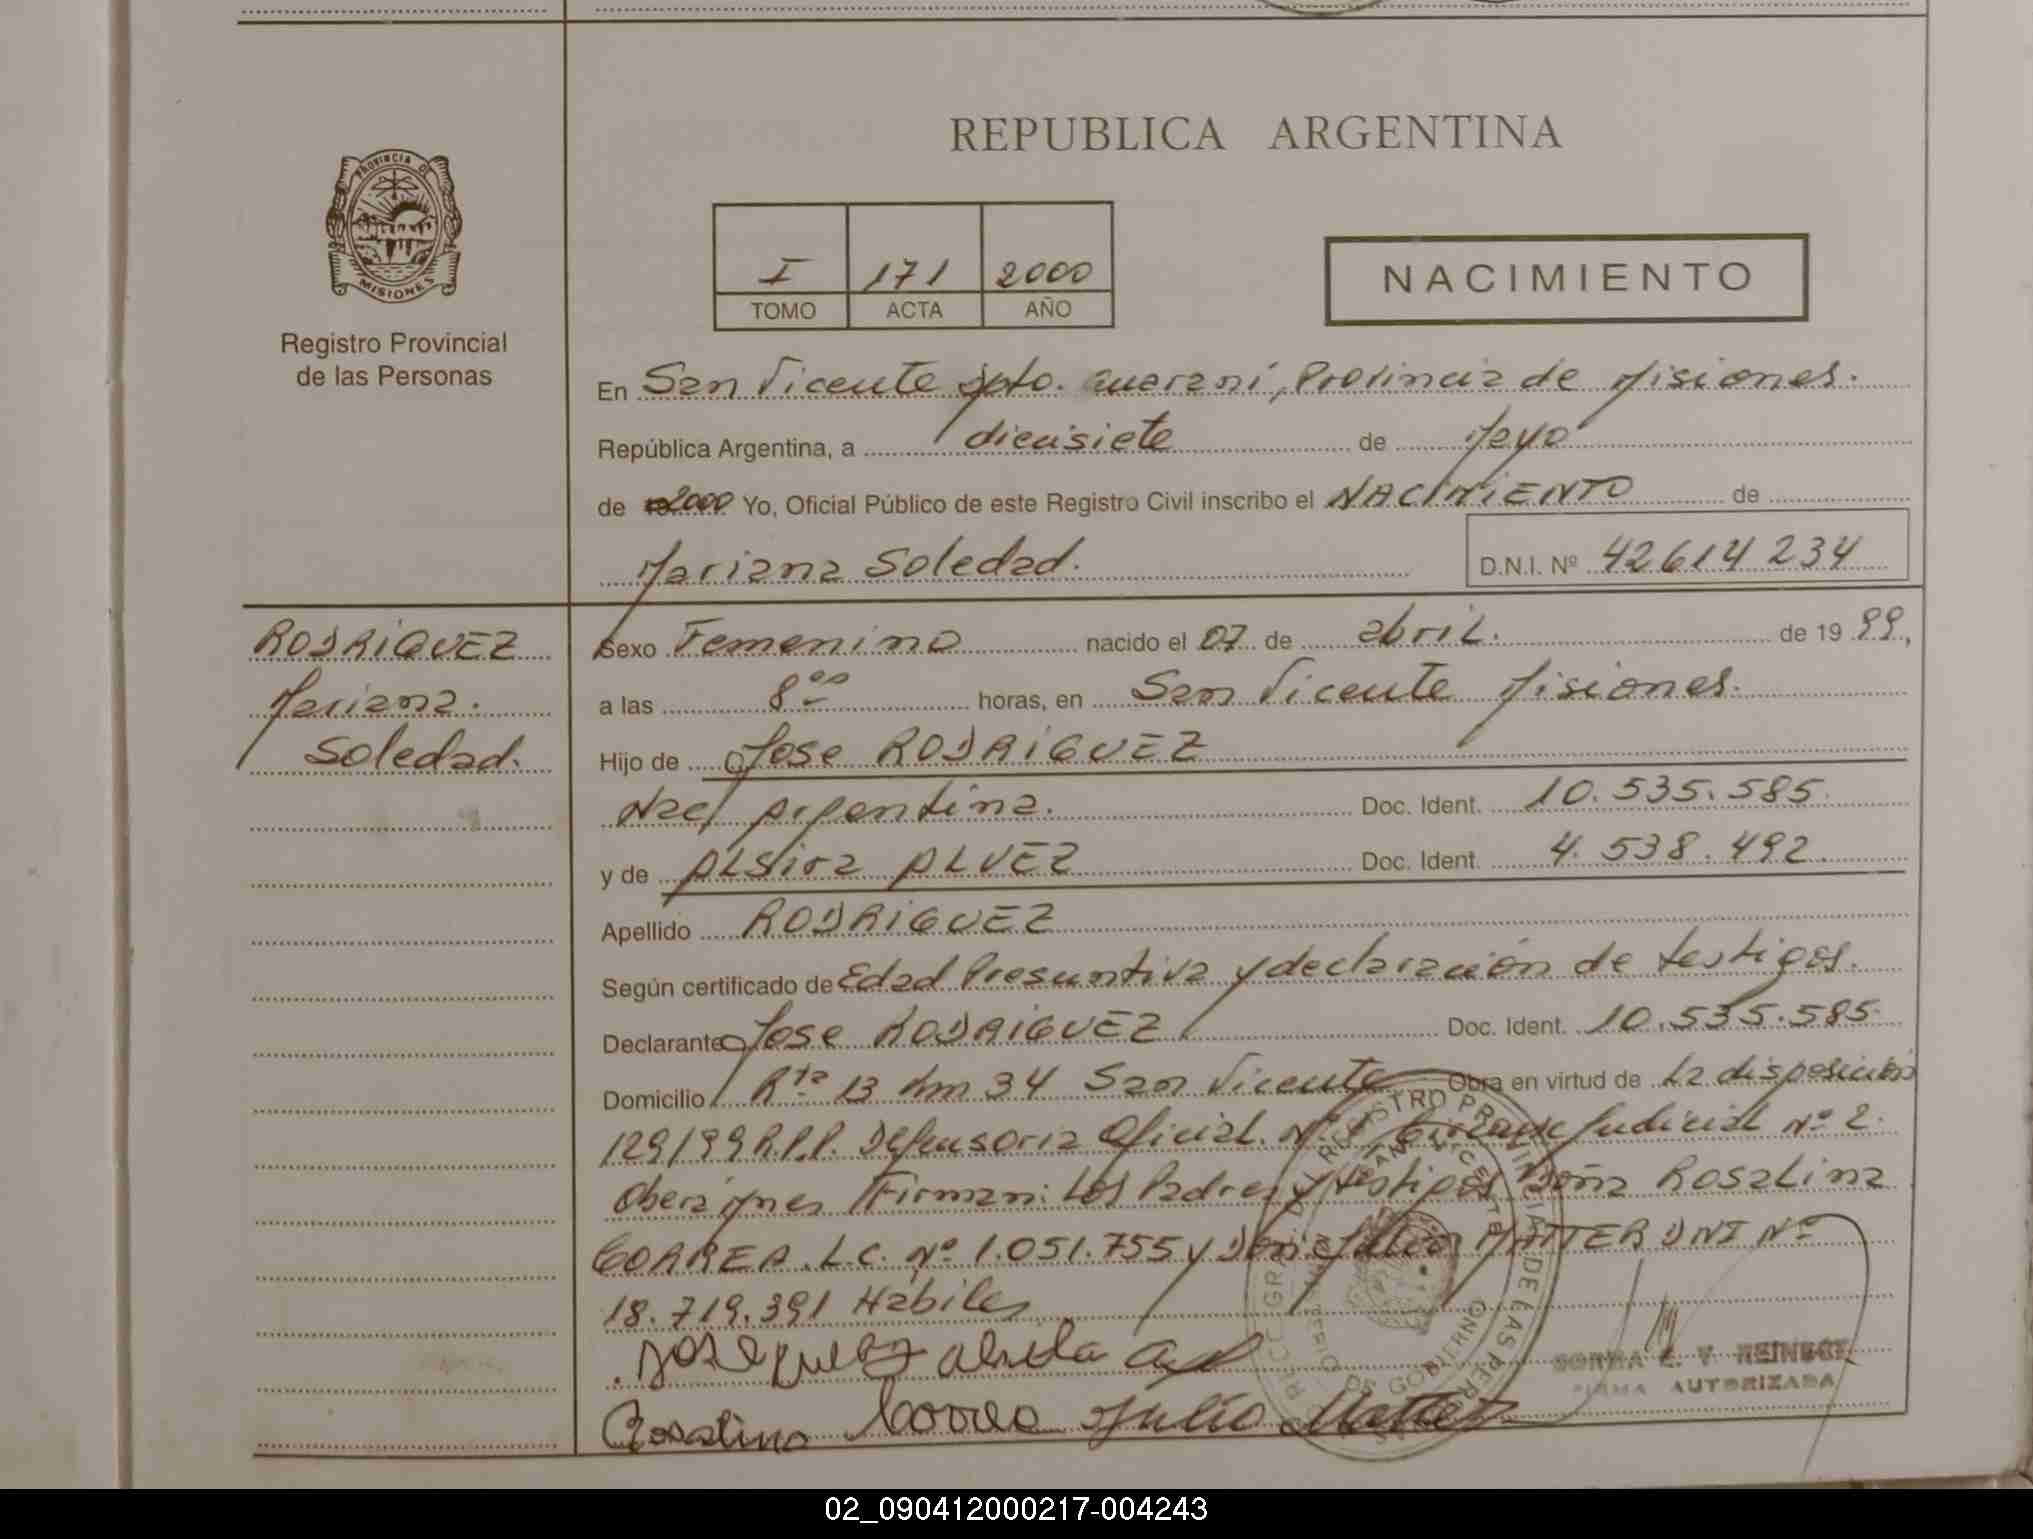 REPUBLICA ARGENTINA
PROVINCIA DE
MISIONES
Registro Provincial
de las Personas
I 171 2000
TOMO ACTA AÑO
NACIMIENTO
En San Vicente Dpto. Guaraní, Provincia de Misiones.
República Argentina, a diecisiete de Mayo
de 2000 Yo, Oficial Público de este Registro Civil inscribo el NACIMIENTO de
Mariana Soledad. D.N.I. Nº 42614234
RODRIGUEZ
Mariana.
Soledad.
Sexo Femenino nacido el 07 de abril. de 19 99,
a las 8 00 horas, en San Vicente Misiones.
Hijo de Jose RODRIGUEZ
Nac Argentina. Doc. Ident. 10.535.585.
y de ALSira ALVEZ Doc. Ident. 4.538.492.
Apellido RODRIGUEZ
Según certificado de Edad Presuntiva y declaración de testigos.
Declarante Jose RODRIGUEZ Doc. Ident. 10.535.585.
Domicilio Rta 13 Km 34 San Vicente Obra en virtud de La disposición
129/99 R.P.P. Defensoria Oficial. Nº 1 Judicial Nº 2.
Firman: Los Padres y testigos Doña Rosalina
CORREA. L.C. Nº 1.051.755 y Don Julio MATTER DNI Nº
18.719.391 Hábiles
Rosalino Correa Julio Matter
REGISTRO PROVINCIAL DE LAS PERSONAS
SAN VICENTE
FIRMA AUTORIZADA
02_090412000217-004243